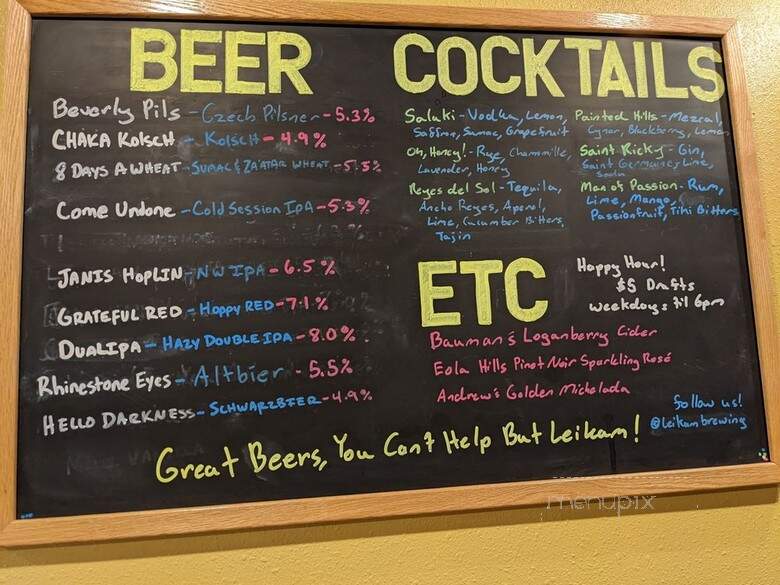 BEER
Beverly Pils - Czech Pilsner - 5.3%
CHAKA KOLSCH - KOLSCH - 4.9%
8 DAYS A WHEAT - SUMAC & ZA'ATAR WHEAT - 5.5%
COME UNDONE - COLD SESSION IPA - 5.3%
JANIS HOPLIN - NW IPA - 6.5%
GRATEFUL RED - HOPPY RED - 7.1%
DUALIPA - HAZY DOUBLE IPA - 8.0%
Rhinestone Eyes - Altbier - 5.5%
HELLO DARKNESS - SCHWARZBIER - 4.9%
COCKTAILS
Saluki - Vodka, Lemon,
Saffron, Sumac, Grapefruit
Oh, Honey! - Rye, Chamomille,
Lavender, Honey
Reyes del Sol - Tequila,
Ancho Reyes, Aperol,
Lime, Cucumber Bitters,
Tajin
Painted Hills - Mezcal,
Cynar, Blackberry, Lemon
Saint Ricky - Gin,
Saint Germain, Lime,
Soda
Man of Passion - Rum,
Lime, Mango,
Passionfruit, Tiki Bitters
ETC
Bauman's Loganberry Cider
Eola Hills Pinot Noir Sparkling Rosé
Andrew's Golden Michelada
Happy Hour!
$5 Drafts
weekdays 'til 6pm
follow us!
@leikambrewing
Great Beers, You Can't Help But Leikam!
menupix